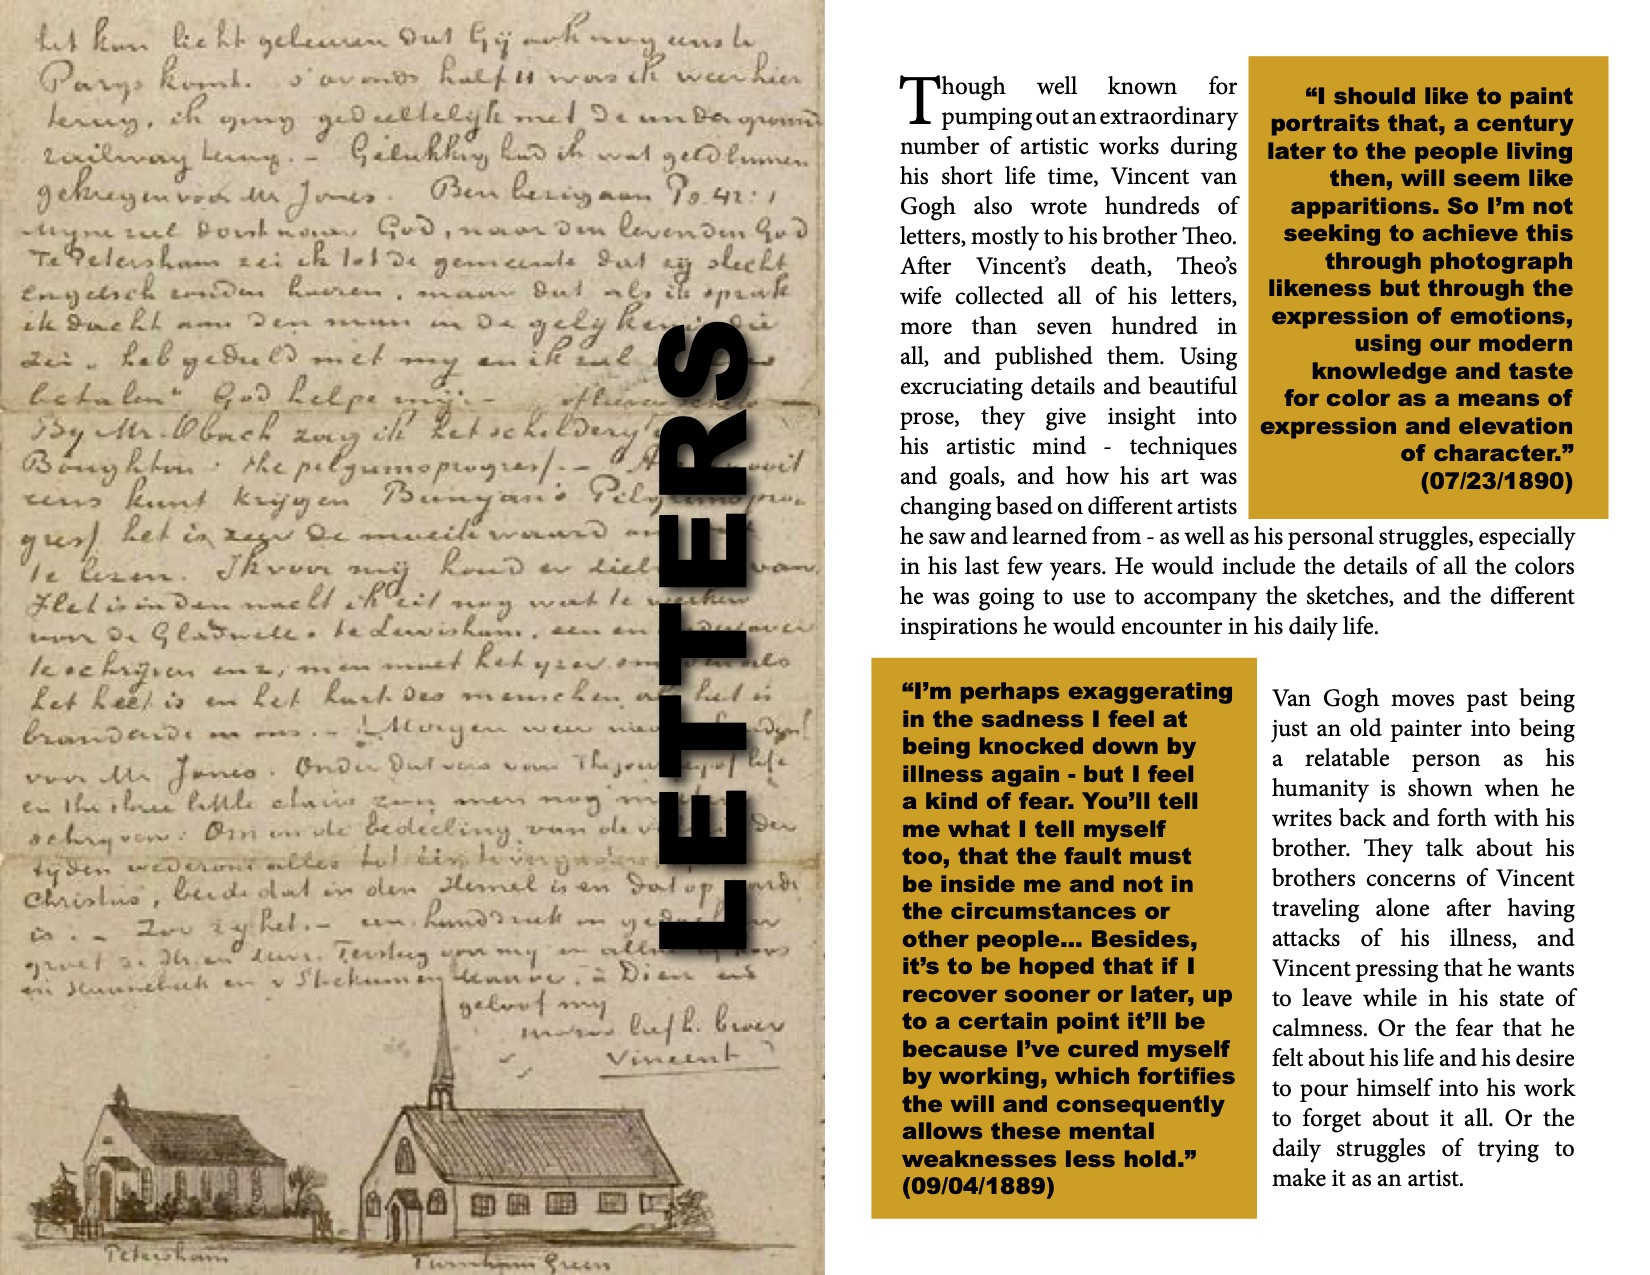 het kan licht gebeuren dat Gij ook nog eens te
Parys komt. s'avonds half 11 was ik weer hier
terug, ik ging gedeeltelijk met de underground
railway terug. - Gelukkig had ik wat geld binnen
gekregen voor Mr Jones. Ben bezig aan Ps 42:1
Myne ziel dorst naar God, naar den levenden God
Te Petersham zei ik tot de gemeente dat zij slecht
Engelsch zouden hooren, maar dat als ik sprak
ik dacht aan den man in de gelijkenis die
zei, heb geduld met my en ik zal
betalen" God helpe mij -
By Mr. Obach zag ik het schildery
Boughton: the pilgrimsprogress. -
eens kunt krijgen Bunyan's Pilgrims pro-
gress het is zeer de moeite waard om
te lezen. Ik voor mij houd er van.
Het is in den nacht ik zit nog wat te werken
voor de Gladwell's te Lewisham, een en ander over
te schrijven enz, men moet het yzer als
het heet is en het hart des menschen als het is
brandende in ons. - Morgen weer
voor Mr Jones. Onder dat vers van The journey of life
en the three little chairs zou men nog
schryven: Om in de bedeeling van de der
tijden wederom alles tot één te vergaderen
Christus, beide dat in den Hemel is en dat op aarde
is. - Zoo zij het. - een handdruk in gedachten
groet en Mevr. Tersteeg voor my en allen
en Haanebeek en v Stockum en Mauve.
geloof my
liefh. broer
Vincent
Petersham
Turnham Green
LETTERS
Though well known for
pumping out an extraordinary
number of artistic works during
his short life time, Vincent van
Gogh also wrote hundreds of
letters, mostly to his brother Theo.
After Vincent’s death, Theo’s
wife collected all of his letters,
more than seven hundred in
all, and published them. Using
excruciating details and beautiful
prose, they give insight into
his artistic mind - techniques
and goals, and how his art was
changing based on different artists
he saw and learned from - as well as his personal struggles, especially
in his last few years. He would include the details of all the colors
he was going to use to accompany the sketches, and the different
inspirations he would encounter in his daily life.
“I should like to paint
portraits that, a century
later to the people living
then, will seem like
apparitions. So I’m not
seeking to achieve this
through photograph
likeness but through the
expression of emotions,
using our modern
knowledge and taste
for color as a means of
expression and elevation
of character.”
(07/23/1890)
“I’m perhaps exaggerating
in the sadness I feel at
being knocked down by
illness again - but I feel
a kind of fear. You’ll tell
me what I tell myself
too, that the fault must
be inside me and not in
the circumstances or
other people... Besides,
it’s to be hoped that if I
recover sooner or later, up
to a certain point it’ll be
because I’ve cured myself
by working, which fortifies
the will and consequently
allows these mental
weaknesses less hold.”
(09/04/1889)
Van Gogh moves past being
just an old painter into being
a relatable person as his
humanity is shown when he
writes back and forth with his
brother. They talk about his
brothers concerns of Vincent
traveling alone after having
attacks of his illness, and
Vincent pressing that he wants
to leave while in his state of
calmness. Or the fear that he
felt about his life and his desire
to pour himself into his work
to forget about it all. Or the
daily struggles of trying to
make it as an artist.